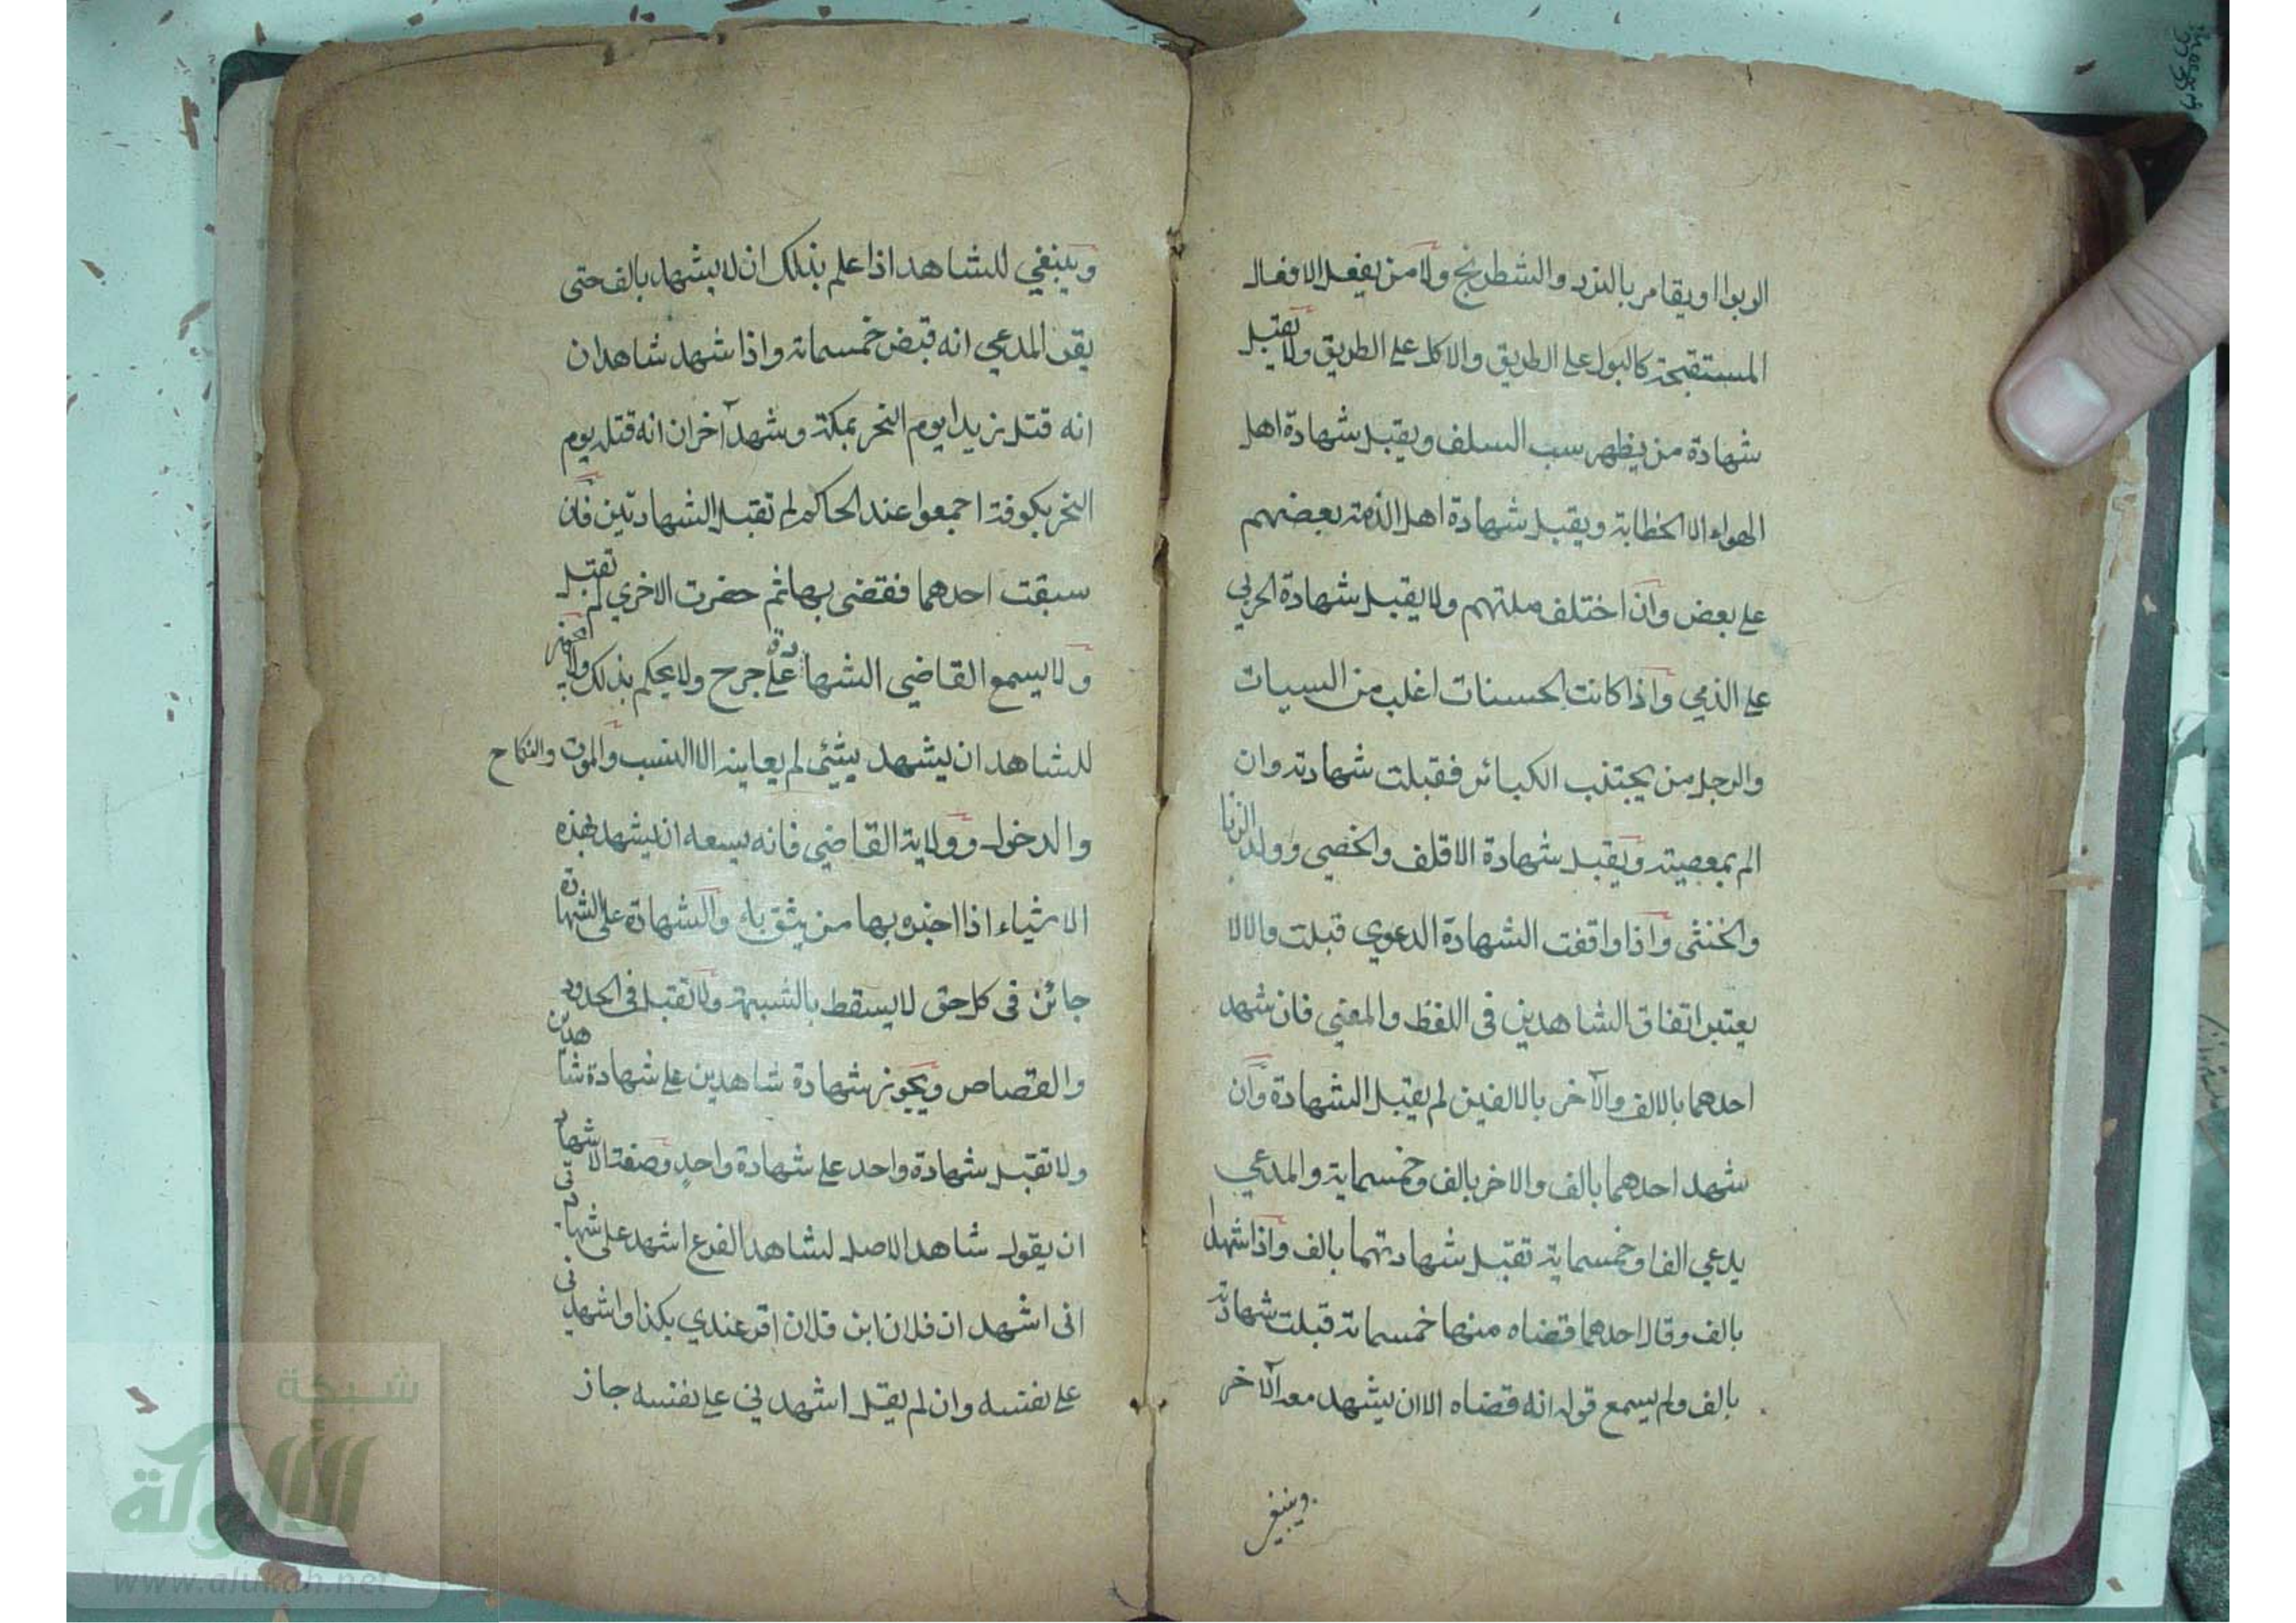 الربوا او يقامر بالنرد والشطرنج ولا من يفعل الافعال
المستقبحة كالبول على الطريق والاكل على الطريق ولا تقبل
شهادة من يظهر سب السلف ويقبل شهادة اهل
الهواء الا الخطابة ويقبل شهادة اهل الذمة بعضهم
على بعض وان اختلف ملتهم ولا يقبل شهادة الحربي
على الذمي واذا كانت الحسنات اغلب من السيات
والرجل من يجتنب الكبائر فقبلت شهادته وان
الم بمعصيته ويقبل شهادة الاقلف والخصي وولد الزنا
والخنثى واذا واقفت الشهادة الدعوي قبلت والالا
يعتبر اتفاق الشاهدين فى اللفظ والمعنى فان شهد
احدهما بالالف والآخر بالالفين لم يقبل الشهادة وان
شهد احدهما بالف والاخر بالف وخمسماية والمدعي
يدعي الفا وخمسماية تقبل شهادتهما بالف واذا شهدا
بالف وقال احدهما قضاه منها خمسماتة قبلت شهادته
بالف ولم يسمع قوله انه قضاه الا ان يشهد معه الآخر
وينبغي
وينبغي للشاهد اذا علم بذلك ان لا يشهد بالف حتى
يقر المدعي انه قبض خمسماتة واذا شهد شاهدان
انه قتل زيدا يوم النحر بمكة وشهد آخران انه قتله يوم
النحر بكوفة اجمعوا عند الحاكم لم تقبل الشهادتين فان
سبقت احدهما فقضى بها ثم حضرت الاخري لم تقبل
ولا يسمع القاضي الشهادة على جرح ولا يحكم بذلك ولا يجوز
للشاهد ان يشهد بشئي لم يعاينه الا النسب والموت والنكاح
والدخول وولاية القاضي فانه يسعه ان يشهد بهذه
الاشياء اذا اخبره بها من يثق به والشهادة على الشهادة
جائز فى كل حق لا يسقط بالشبهة ولا تقبل فى الحدود
والقصاص ويجوز شهادة شاهدين على شهادة شاهدين
ولا تقبل شهادة واحد على شهادة واحد وصفة الاشهاد
ان يقول شاهد الاصل لشاهد الفرع اشهد على شهادتي
انى اشهد ان فلان ابن فلان اقر عندي بكذا واشهدني
على نفسه وان لم يقل اشهدني على نفسه جاز
شبكة
الألوكة
www.alukah.net